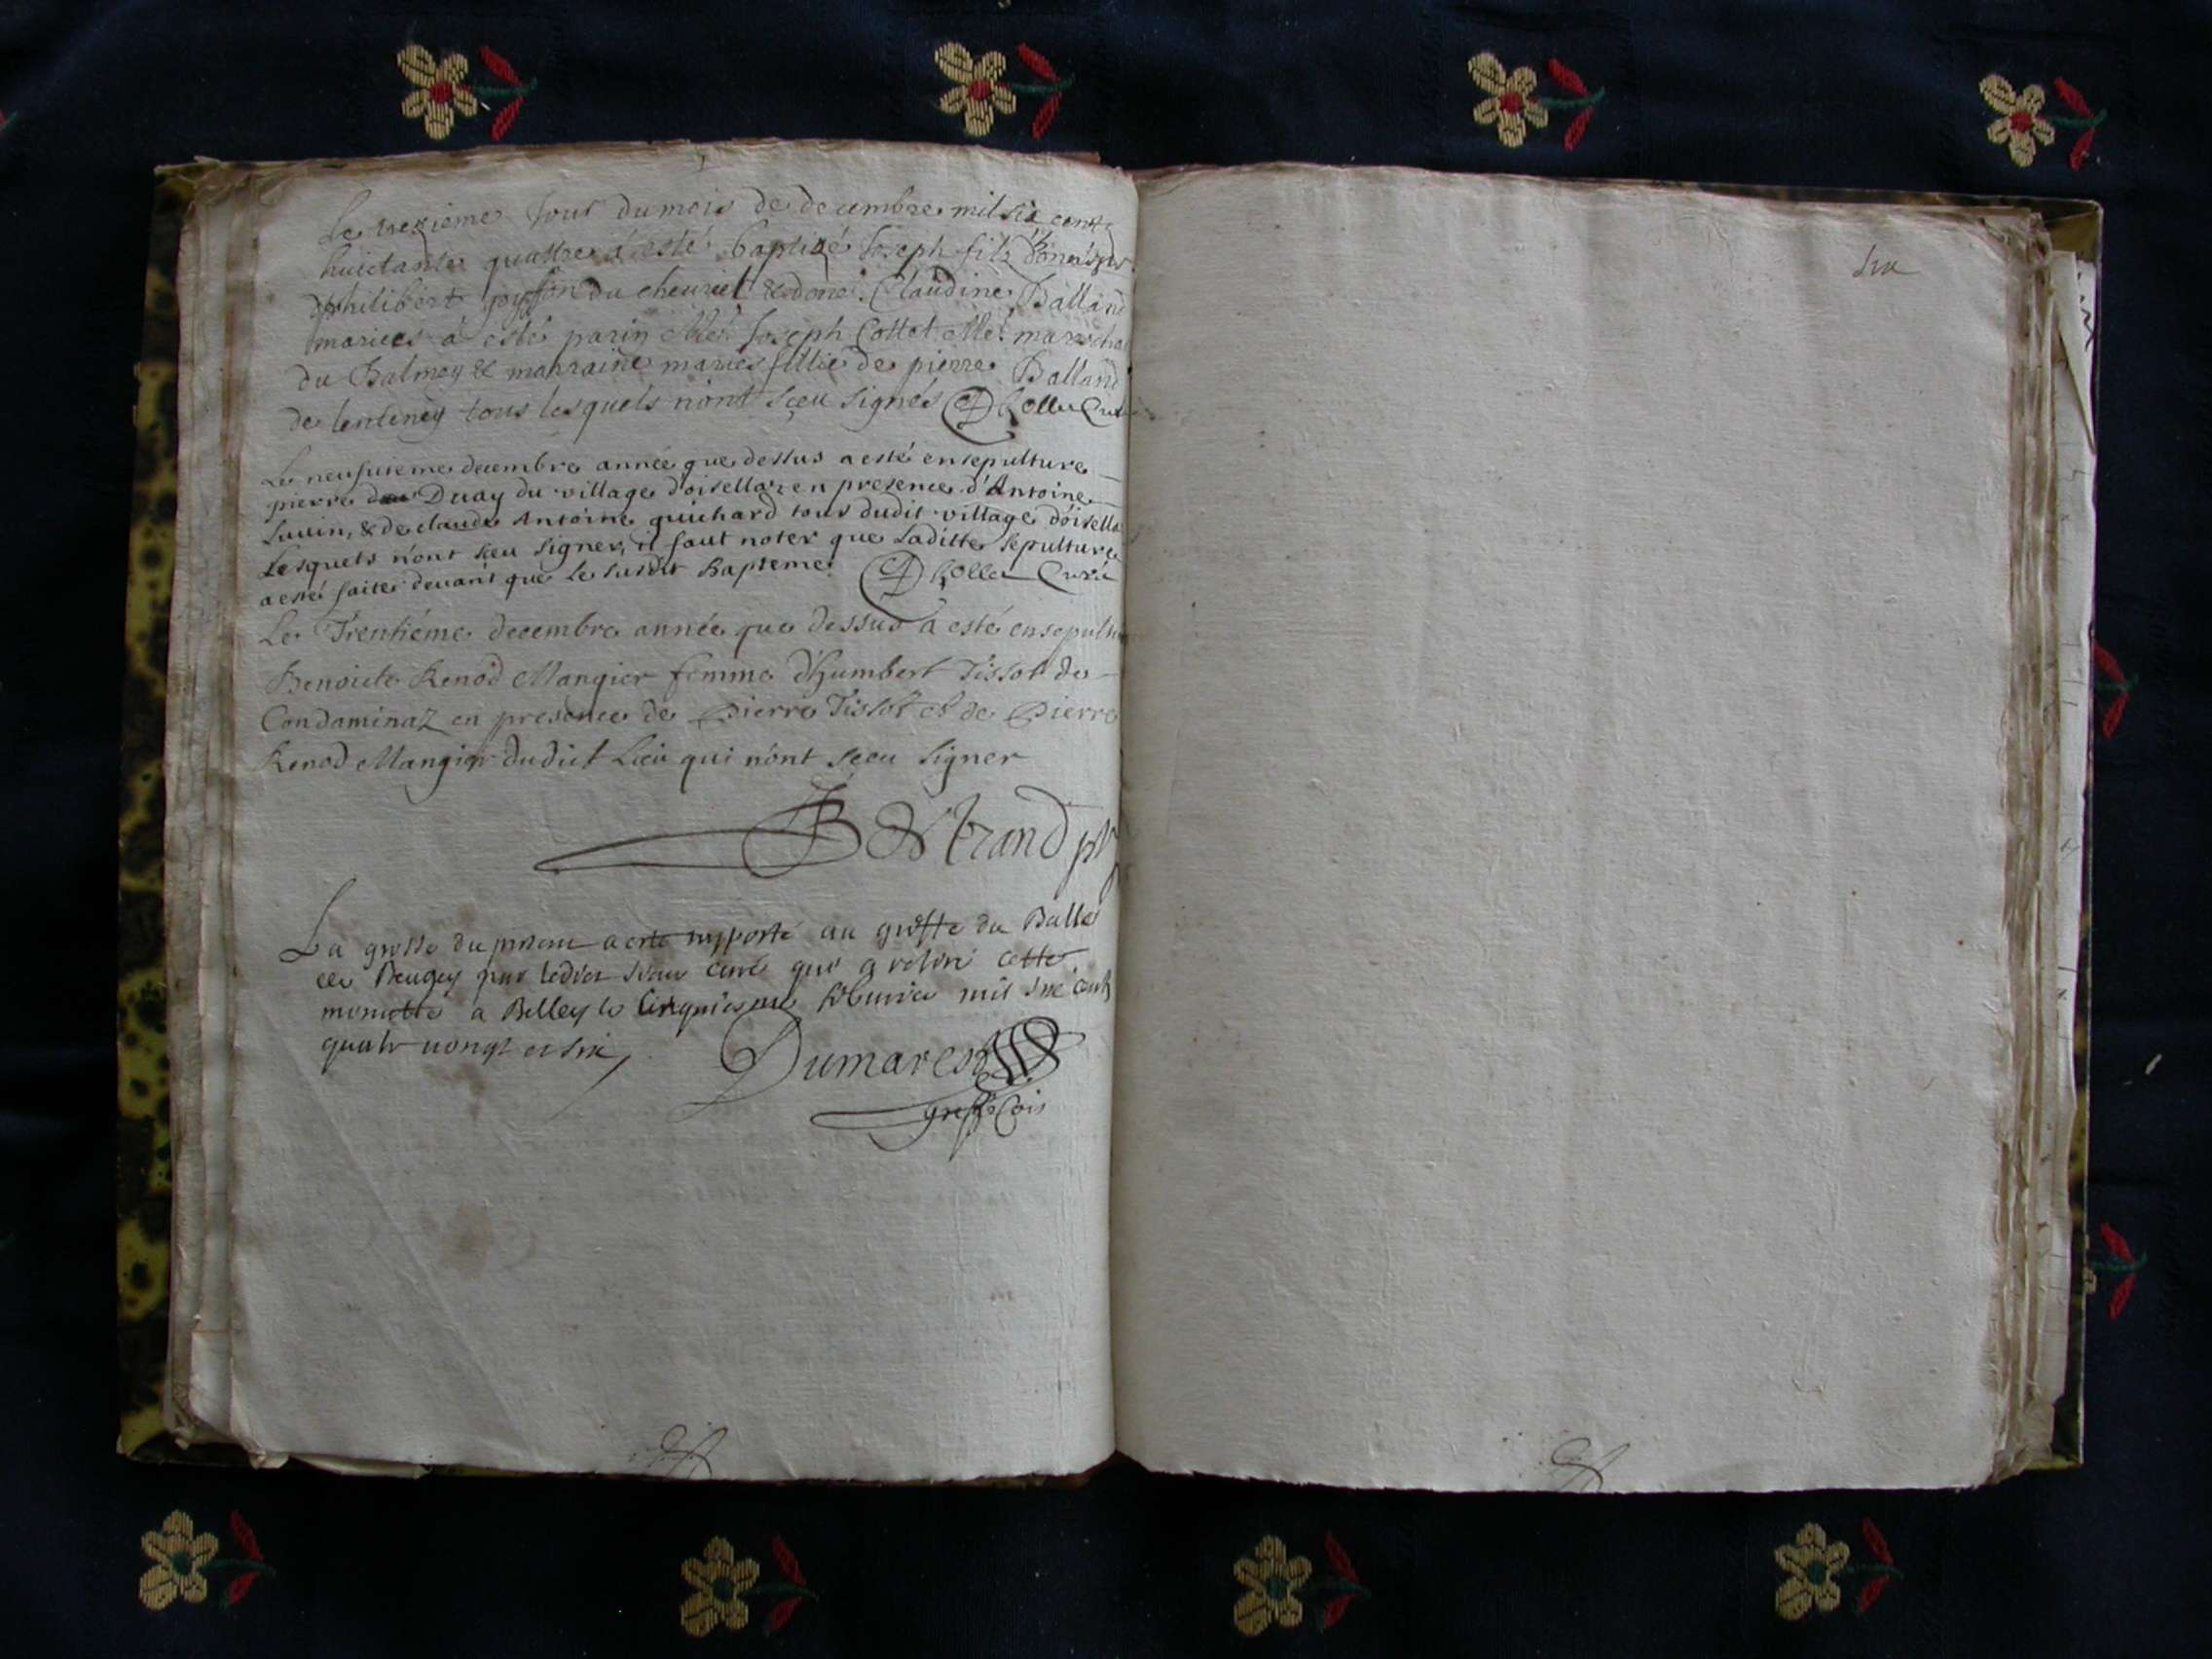 Le trezieme jour du mois de decembre mil six cent
huictante quattre a esté baptizé Joseph fils d'honeste
philibert du cheuriel & done. Claudine Balland
mariees a esté parin Me. Joseph Collet Me. marescha
du Balmey & marraine marie fillie de pierre Balland
de lenteney tous lesquels n'ont sçeu signés Curé
Le neufuieme decembre année que dessus a esté ensepulture
pierre Duay du village d'oisellaz en presence d'Antoine
& de claude Antoine guichard tous dudit village d'oisella
Lesquels n'ont sceu signer, il faut noter que laditte sepulture
a esté faite deuant que le susdit Bapteme. Curé
Le Trentiéme decembre année que dessus a esté ensepultu
Benoicte Renod Mangier femme d'humbert Tissot de
Condaminaz en presence de Pierre Tissot et de Pierre
Renod Mangier dudict Lieu qui n'ont sçeu signer
Bertrand pbr
La grosse du present a esté rapporté au greffe du Balle
de Beugey par ledict sieur curé qui a retiré cette
minutte a Belley le cinquiesme feburier mil six cents
quatre uingt et six
Dumarest
greff
six